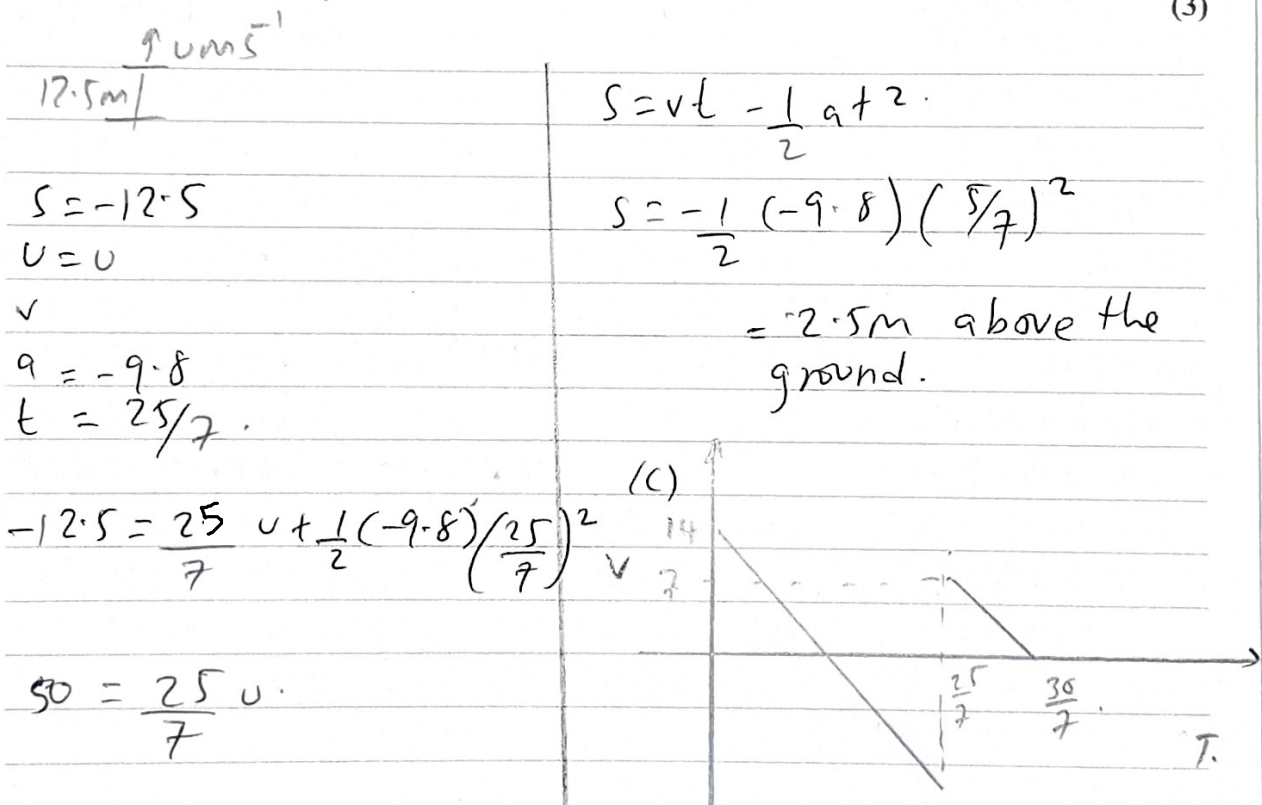 (3)
↑ u ms⁻¹
12.5m
s = -12.5
u = u
v
a = -9.8
t = 25/7.
-12.5 = 25/7 u + 1/2 (-9.8)(25/7)²
50 = 25/7 u.
s = vt - 1/2 at².
s = -1/2 (-9.8)(5/7)²
= 2.5m above the
ground.
(C)
14
V
7
25/7
30/7.
T.